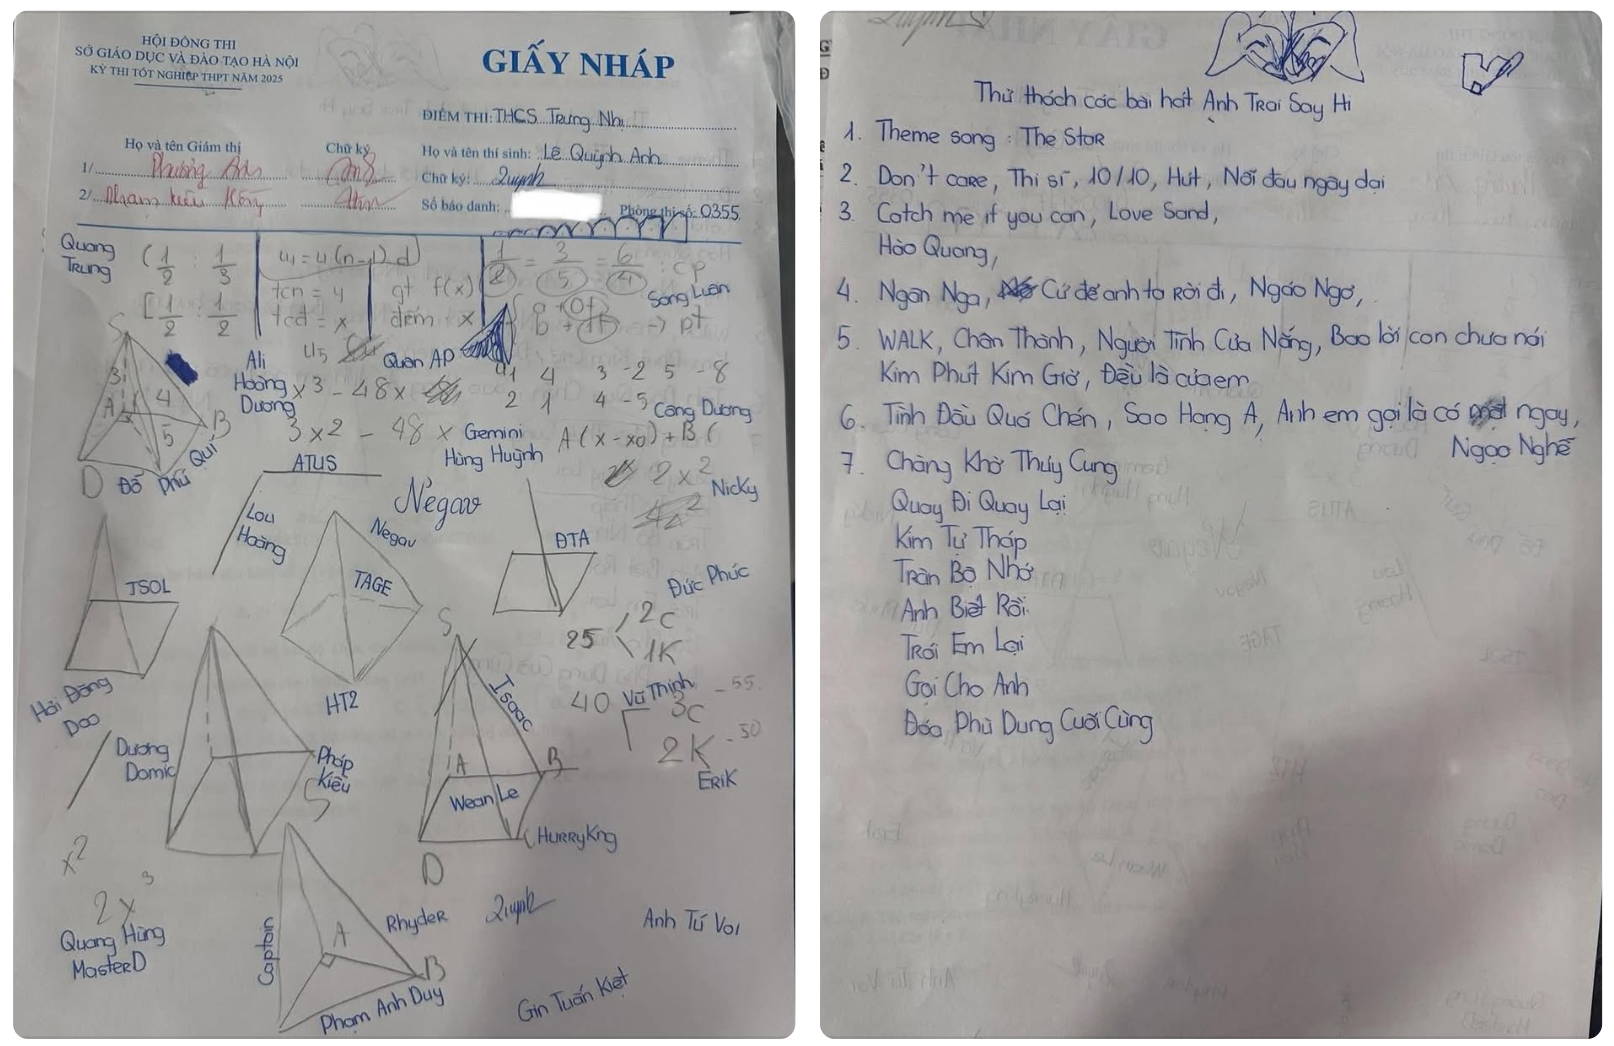 HỘI ĐỒNG THI
SỞ GIÁO DỤC VÀ ĐÀO TẠO HÀ NỘI
KỲ THI TỐT NGHIỆP THPT NĂM 2025
GIẤY NHÁP
ĐIỂM THI: THCS Trưng Nhị
Họ và tên Giám thị
Chữ ký
Họ và tên thí sinh: Lê Quỳnh Anh
1/
Chữ ký: Quynh
2/
Số báo danh:
Phòng thi số: 0355
Quang
Trung
( 1/2 : 1/3
[ 1/2 : 1/2
tcn = y
tcđ = x
gt f(x)
đếm x
1/2 = 3/5 = 6/4 : cp
Song Luân
→ pt
S
3
4
A
5
B
D
Đỗ Phú Quí
Ali
Hoàng
Dương
45
Quân AP
x3 - 48x
1 4 3 -2 5 8
2 1 4 -5
Công Dương
3x2 - 48x
Gemini
Hùng Huỳnh
A(x-x0) + B(
2x²
Nicky
ATUS
Lou
Hoàng
Négav
Negav
TAGE
HT2
JSOL
ĐTA
Đức Phúc
25 < 2C
1K
Hải Đăng
Doo
Dương
Domic
Pháp
Kiều
S
S
Isaac
40
Vũ Thịnh
3C - 55
2K - 50
ERIK
A
B
Wean Le
HURRYKNG
D
x²
2x³
Quang Hùng
MasterD
Captain
A
Rhyder
Quynh
Anh Tú Voi
B
Phạm Anh Duy
Gin Tuấn Kiệt
Quynh
Thử thách các bài hát Anh Trai Say Hi
1. Theme song : The Star
2. Don't care, Thi sĩ, 10/10, Hút, Nỗi đau ngây dại
3. Catch me if you can, Love Sand,
Hào Quang,
4. Ngân Nga, Cứ để anh ta rời đi, Ngáo Ngơ,
5. WALK, Chân Thành, Người Tình Của Nắng, Bao lời con chưa nói
Kim Phút Kim Giờ, Đều là của em
6. Tình Đầu Quá Chén, Sao Hạng A, Anh em gọi là có ngay,
Ngạo Nghễ
7. Chàng Khờ Thủy Cung
Quay Đi Quay Lại
Kim Tự Tháp
Tràn Bộ Nhớ
Anh Biết Rồi
Trói Em Lại
Gọi Cho Anh
Đóa Phù Dung Cuối Cùng